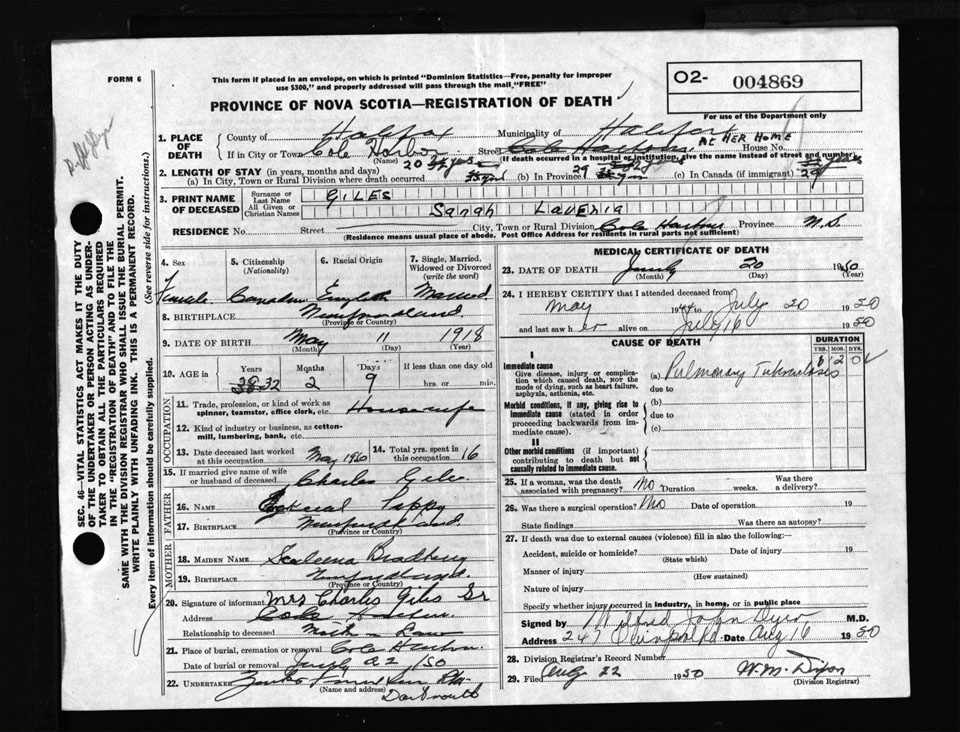 FORM 6
This form if placed in an envelope, on which is printed "Dominion Statistics—Free, penalty for improper
use $300," and properly addressed will pass through the mail, "FREE"
O2- 004869
For use of the Department only
PROVINCE OF NOVA SCOTIA—REGISTRATION OF DEATH
1. PLACE OF DEATH County of Halifax Municipality of Halifax
AT HER HOME
If in City or Town Cole Harbor Street Cole Harbour House No.
(Name) (If death occurred in a hospital or institution, give the name instead of street and number)
2. LENGTH OF STAY (in years, months and days)
(a) In City, Town or Rural Division where death occurred 20 (b) In Province 29 (c) In Canada (if immigrant) 29
3. PRINT NAME OF DECEASED
Surname or Last Name GILES
All Given or Christian Names Sarah Laveria
RESIDENCE No. Street City, Town or Rural Division Cole Harbour Province N.S.
(Residence means usual place of abode. Post Office Address for residents in rural parts not sufficient)
4. Sex Female
5. Citizenship (Nationality) Canadian
6. Racial Origin English
7. Single, Married, Widowed or Divorced (write the word) Married
8. BIRTHPLACE Newfoundland
(Province or Country)
9. DATE OF BIRTH May 11 1918
(Month) (Day) (Year)
10. AGE in Years 32 Months 2 Days 9 If less than one day old hrs. or min.
OCCUPATION
11. Trade, profession, or kind of work as spinner, teamster, office clerk, etc. Housewife
12. Kind of industry or business, as cotton-mill, lumbering, bank, etc.
13. Date deceased last worked at this occupation May 1950
14. Total yrs. spent in this occupation 16
15. If married give name of wife or husband of deceased Charles Giles
FATHER
16. Name Pippy
17. BIRTHPLACE Newfoundland
(Province or Country)
MOTHER
18. MAIDEN NAME Bradbury
19. BIRTHPLACE Newfoundland
(Province or Country)
20. Signature of informant Mrs Charles Giles Sr
Address Cole Harbour
Relationship to deceased Moth n Law
21. Place of burial, cremation or removal Cole Harbour
Date of burial or removal July 22 /50
22. UNDERTAKER
(Name and address) Dartmouth
MEDICAL CERTIFICATE OF DEATH
23. DATE OF DEATH July 20 1950
(Month) (Day)
24. I HEREBY CERTIFY that I attended deceased from
May 1944 to July 20 1950
and last saw her alive on July 16 1950
CAUSE OF DEATH
DURATION
YRS. MOS. DYS.
6 2 0
I
Immediate cause
Give disease, injury or complication which caused death, NOT the mode of dying, such as heart failure, asphyxia, asthenia, etc.
(a) Pulmonary Tuberculosis
due to
Morbid conditions, if any, giving rise to immediate cause (stated in order proceeding backwards from immediate cause).
(b)
due to
(c)
II
Other morbid conditions (if important) contributing to death but not causally related to immediate cause.
25. If a woman, was the death associated with pregnancy? No Duration weeks. Was there a delivery?
26. Was there a surgical operation? No Date of operation 19
State findings Was there an autopsy?
27. If death was due to external causes (violence) fill in also the following:
Accident, suicide or homicide? Date of injury 19
(State which)
Manner of injury
(How sustained)
Nature of injury
Specify whether injury occurred in industry, in home, or in public place
Signed by John Dyer M.D.
Address 247 Date Aug 16 1950
28. Division Registrar's Record Number
29. Filed Aug 22 1950 W. M. Dixon
(Division Registrar)
SEC. 46—VITAL STATISTICS ACT MAKES IT THE DUTY
OF THE UNDERTAKER OR PERSON ACTING AS UNDER-
TAKER TO OBTAIN ALL THE PARTICULARS REQUIRED
IN THE "REGISTRATION OF DEATH" AND TO FILE THE
SAME WITH THE DIVISION REGISTRAR WHO SHALL ISSUE THE BURIAL PERMIT.
WRITE PLAINLY WITH UNFADING INK. THIS IS A PERMANENT RECORD.
(See reverse side for instructions.)
Every item of information should be carefully supplied.